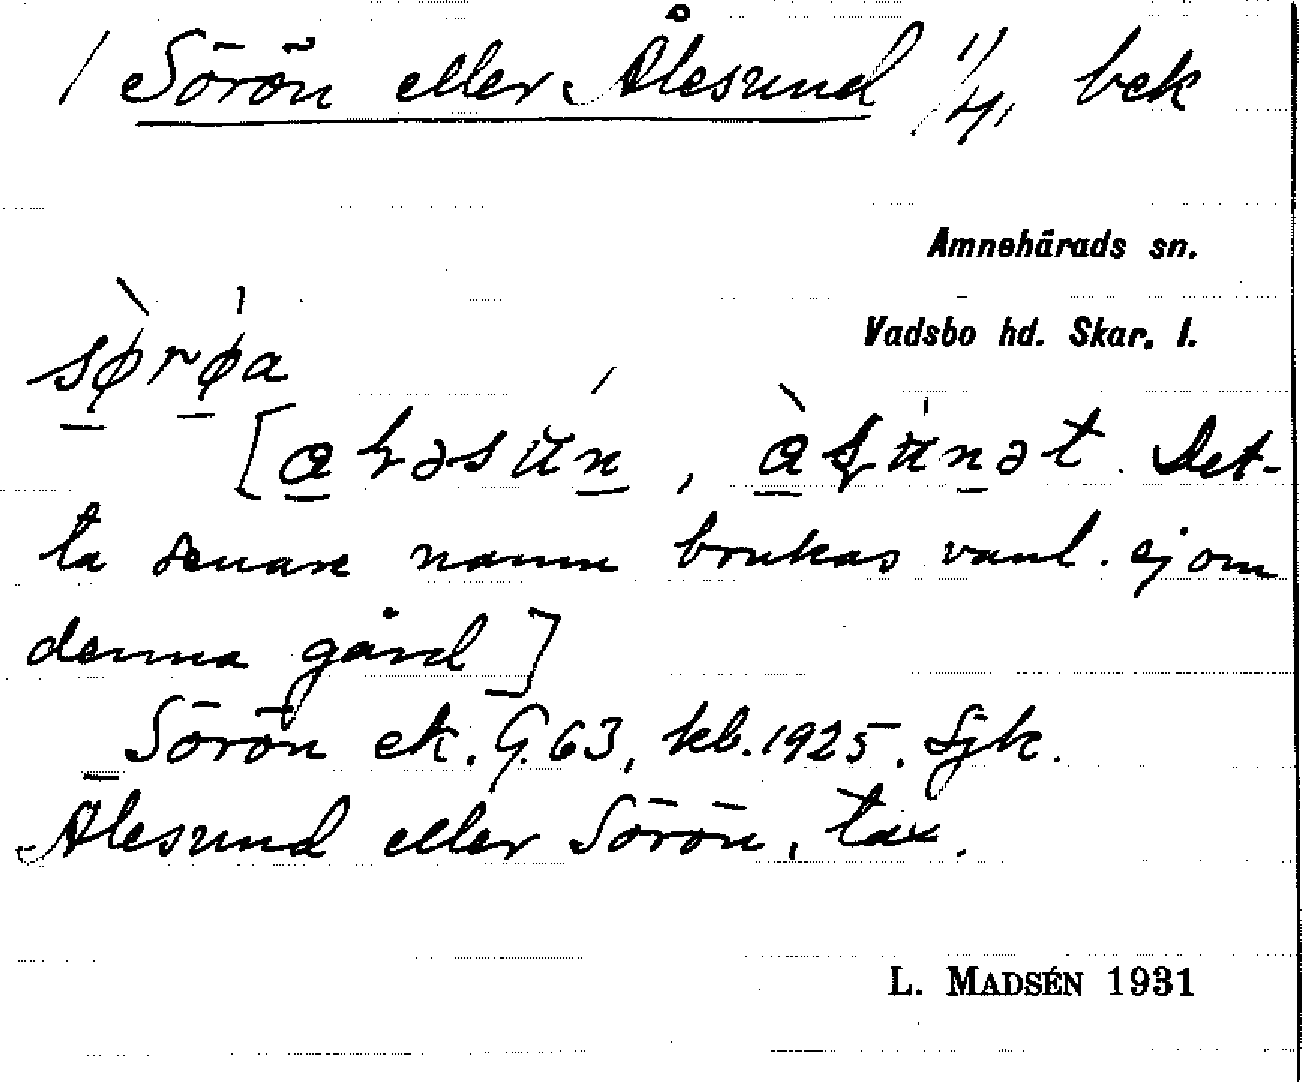 / Sörön eller Ålesund 1/4, bek
Amnehärads sn.
Vadsbo hd. Skar. l.
sørøa
[aləsun, asunət. Det-
ta senare namn brukas vanl. ej om
denna gård]
Sörön ek. G. 63, kb. 1925. Sjk.
Ålesund eller Sörön, tax.
L. MADSÉN 1931